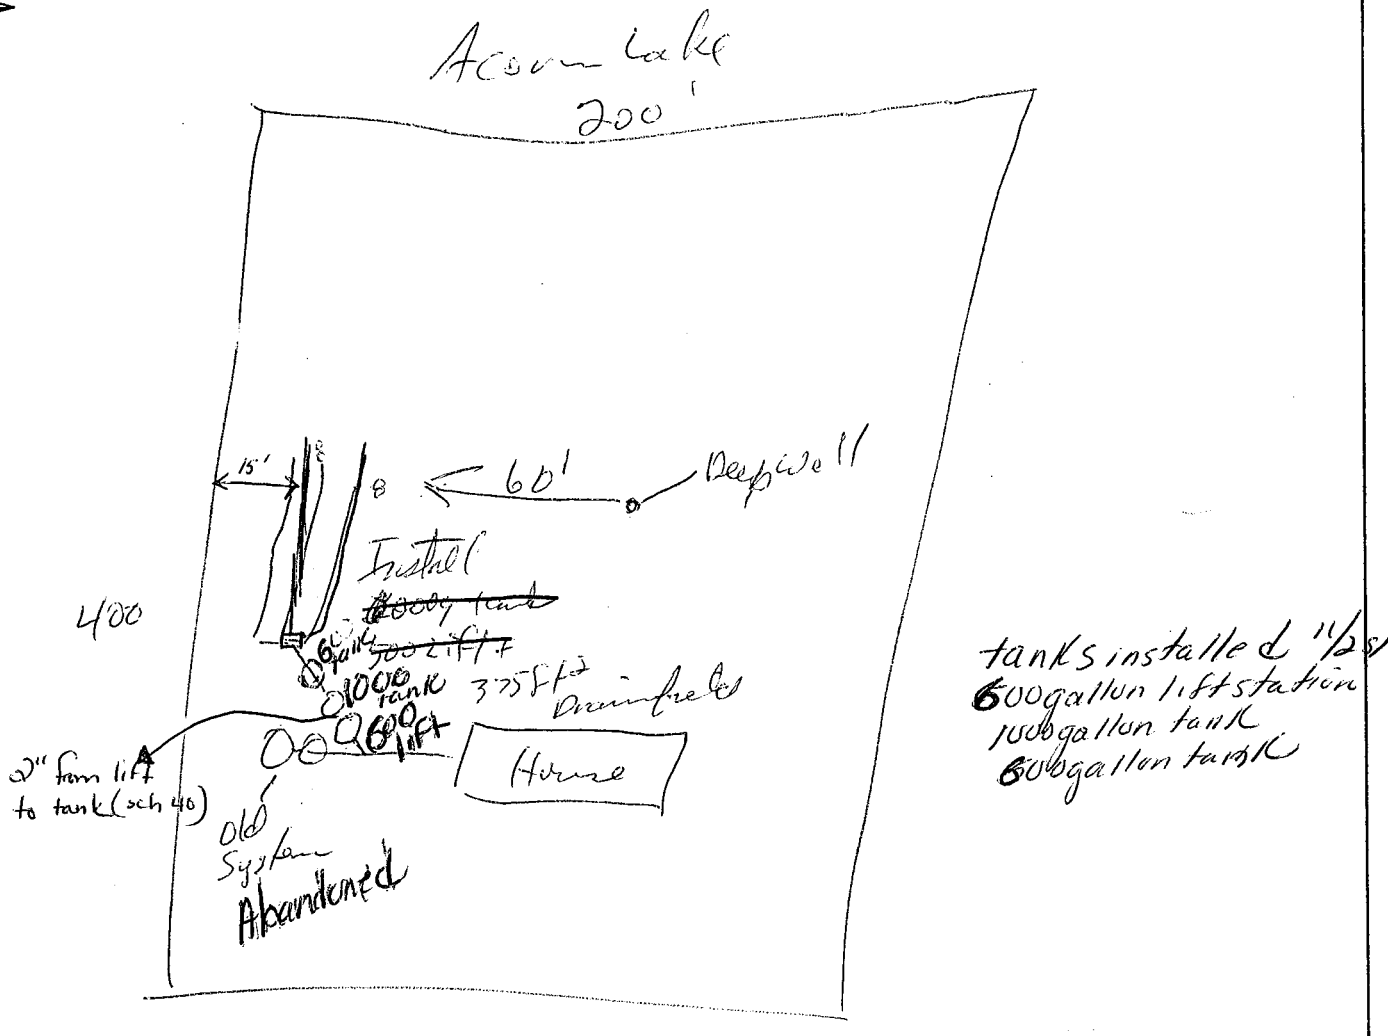 Acorn Lake
200'
15'
8
8
60'
Deep Well
Install
400
600
tank
500 Lift
1000
tank
375 ft2
Drainfield
600
lift
House
2" from lift
to tank (sch 40)
Old
System
Abandoned
tanks installed 11/2
600 gallon lift station
1000 gallon tank
600 gallon tank